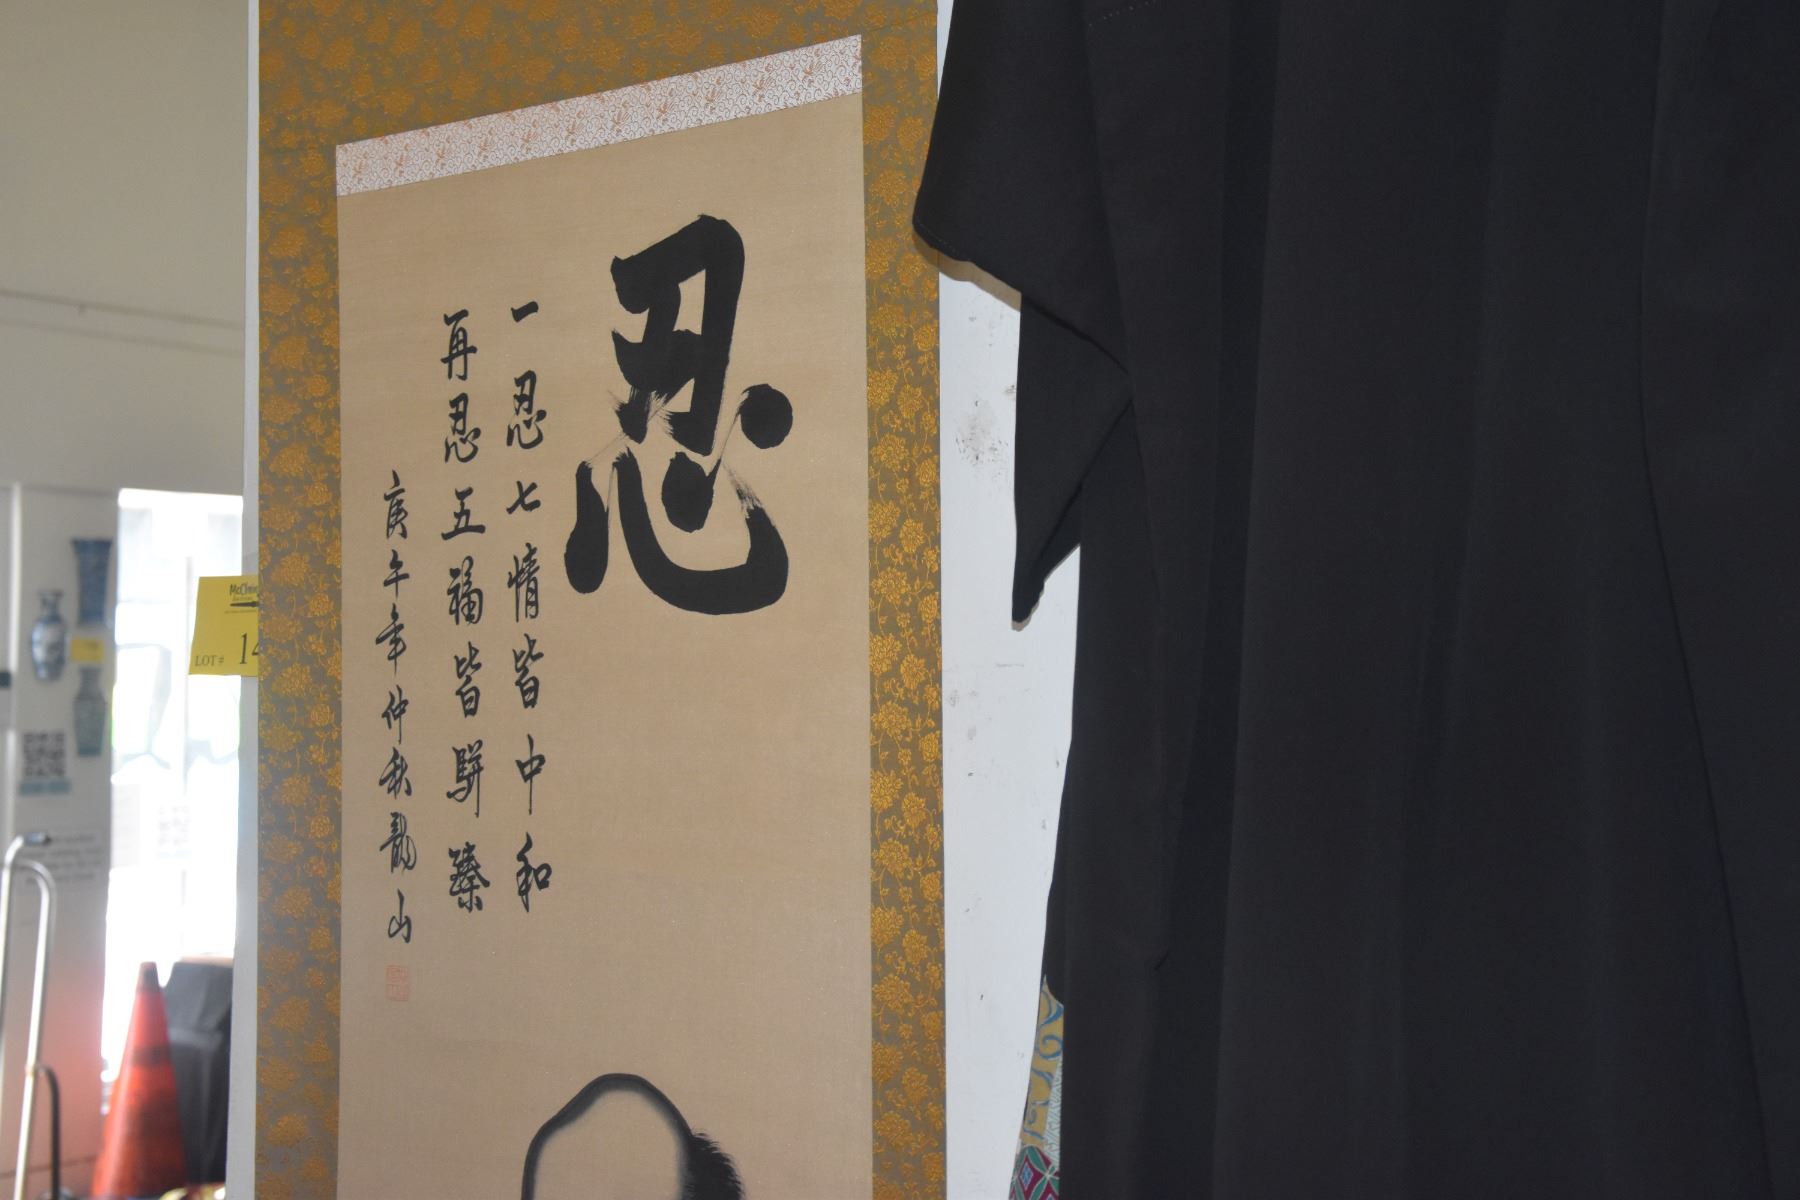 忍
一忍七情皆中和
再忍五福皆駢臻
庚午年仲秋龍山
LOT#
14